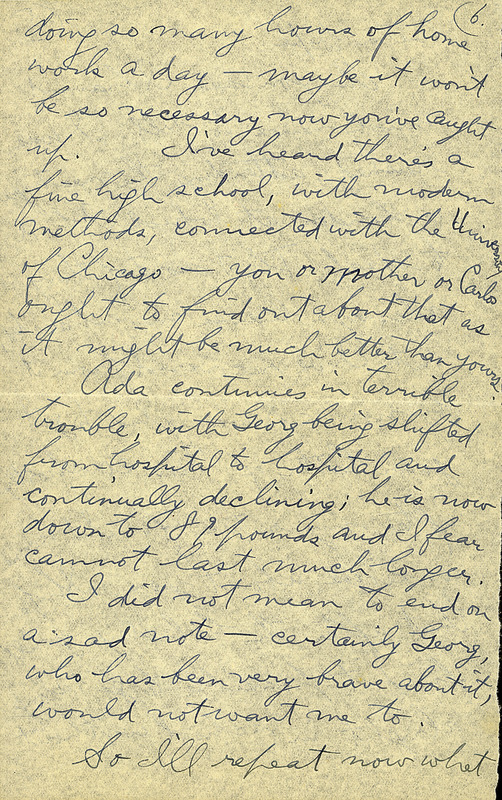 (6.
doing so many hours of home
work a day — maybe it won't
be so necessary now you've caught
up. I've heard there's a
fine high school, with modern
methods, connected with the University
of Chicago — you or mother or Carlos
ought to find out about that as
it might be much better than yours.
Ada continues in terrible
trouble, with Georg being shifted
from hospital to hospital and
continually declining; he is now
down to 89 pounds and I fear
cannot last much longer.
I did not mean to end on
a sad note — certainly Georg,
who has been very brave about it,
would not want me to.
So I'll repeat now what